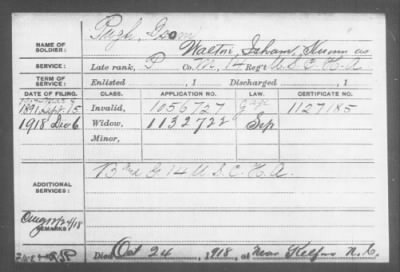 Pugh, Isom
NAME OF SOLDIER:
Walton, Isham, Known as
SERVICE:
Late rank, P Co. M, 14 Reg't U.S.C.H.A
TERM OF SERVICE:
Enlisted , 1 Discharged , 1
DATE OF FILING. CLASS. APPLICATION NO. LAW. CERTIFICATE NO.
1891 Sept 15 Invalid, 1056727 1127185
1918 Dec 6 Widow, 1132722 Sep
Minor,
ADDITIONAL SERVICES:
G 14 U.S.C.H.A.
REMARKS:
Died Oct 24, 1918, at Near Kelford N.C.